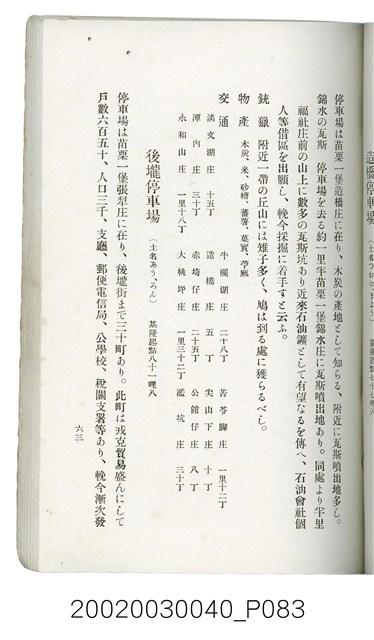 造橋停車場
停車場は苗栗一堡造橋庄に在り、木炭の產地として知らる、附近に瓦斯噴出地多し。
錦水の瓦斯 停車場を去る約一里半苗栗一堡錦水庄に瓦斯噴出地あり。同處より半里
福社庄前の山上に數多の瓦斯坑あり近來石油鑛として有望なるを傳へ、石油會社個
人等借區を出願し、輓今採掘に着手すと云ふ。
銃獵 附近一帶の丘山には雉子多く、鳩は到る處に獲らるべし。
物產 木炭、米、砂糖、蕃薯、菓實、苧麻
交通
牛欄湖庄 二十八丁 苦苓脚庄 一里十二丁
淡文湖庄 十五丁 造橋庄 五丁 尖山下庄 十丁
潭內庄 三十丁 赤埼仔庄 二十五丁 公館仔庄 八丁
永和山庄 一里十八丁 大桃坪庄 一里三十二丁 濫坑庄 三十丁
後壠停車場 (土名あう、ろん) 基隆起點八十一哩八
停車場は苗栗一堡張犁庄に在り、後壠街まで三十町あり。此町は戎克貿易盛んにして
戶數六百五十、人口三千、支廳、郵便電信局、公學校、稅關支署等あり、輓今漸次發
六三
20020030040_P083